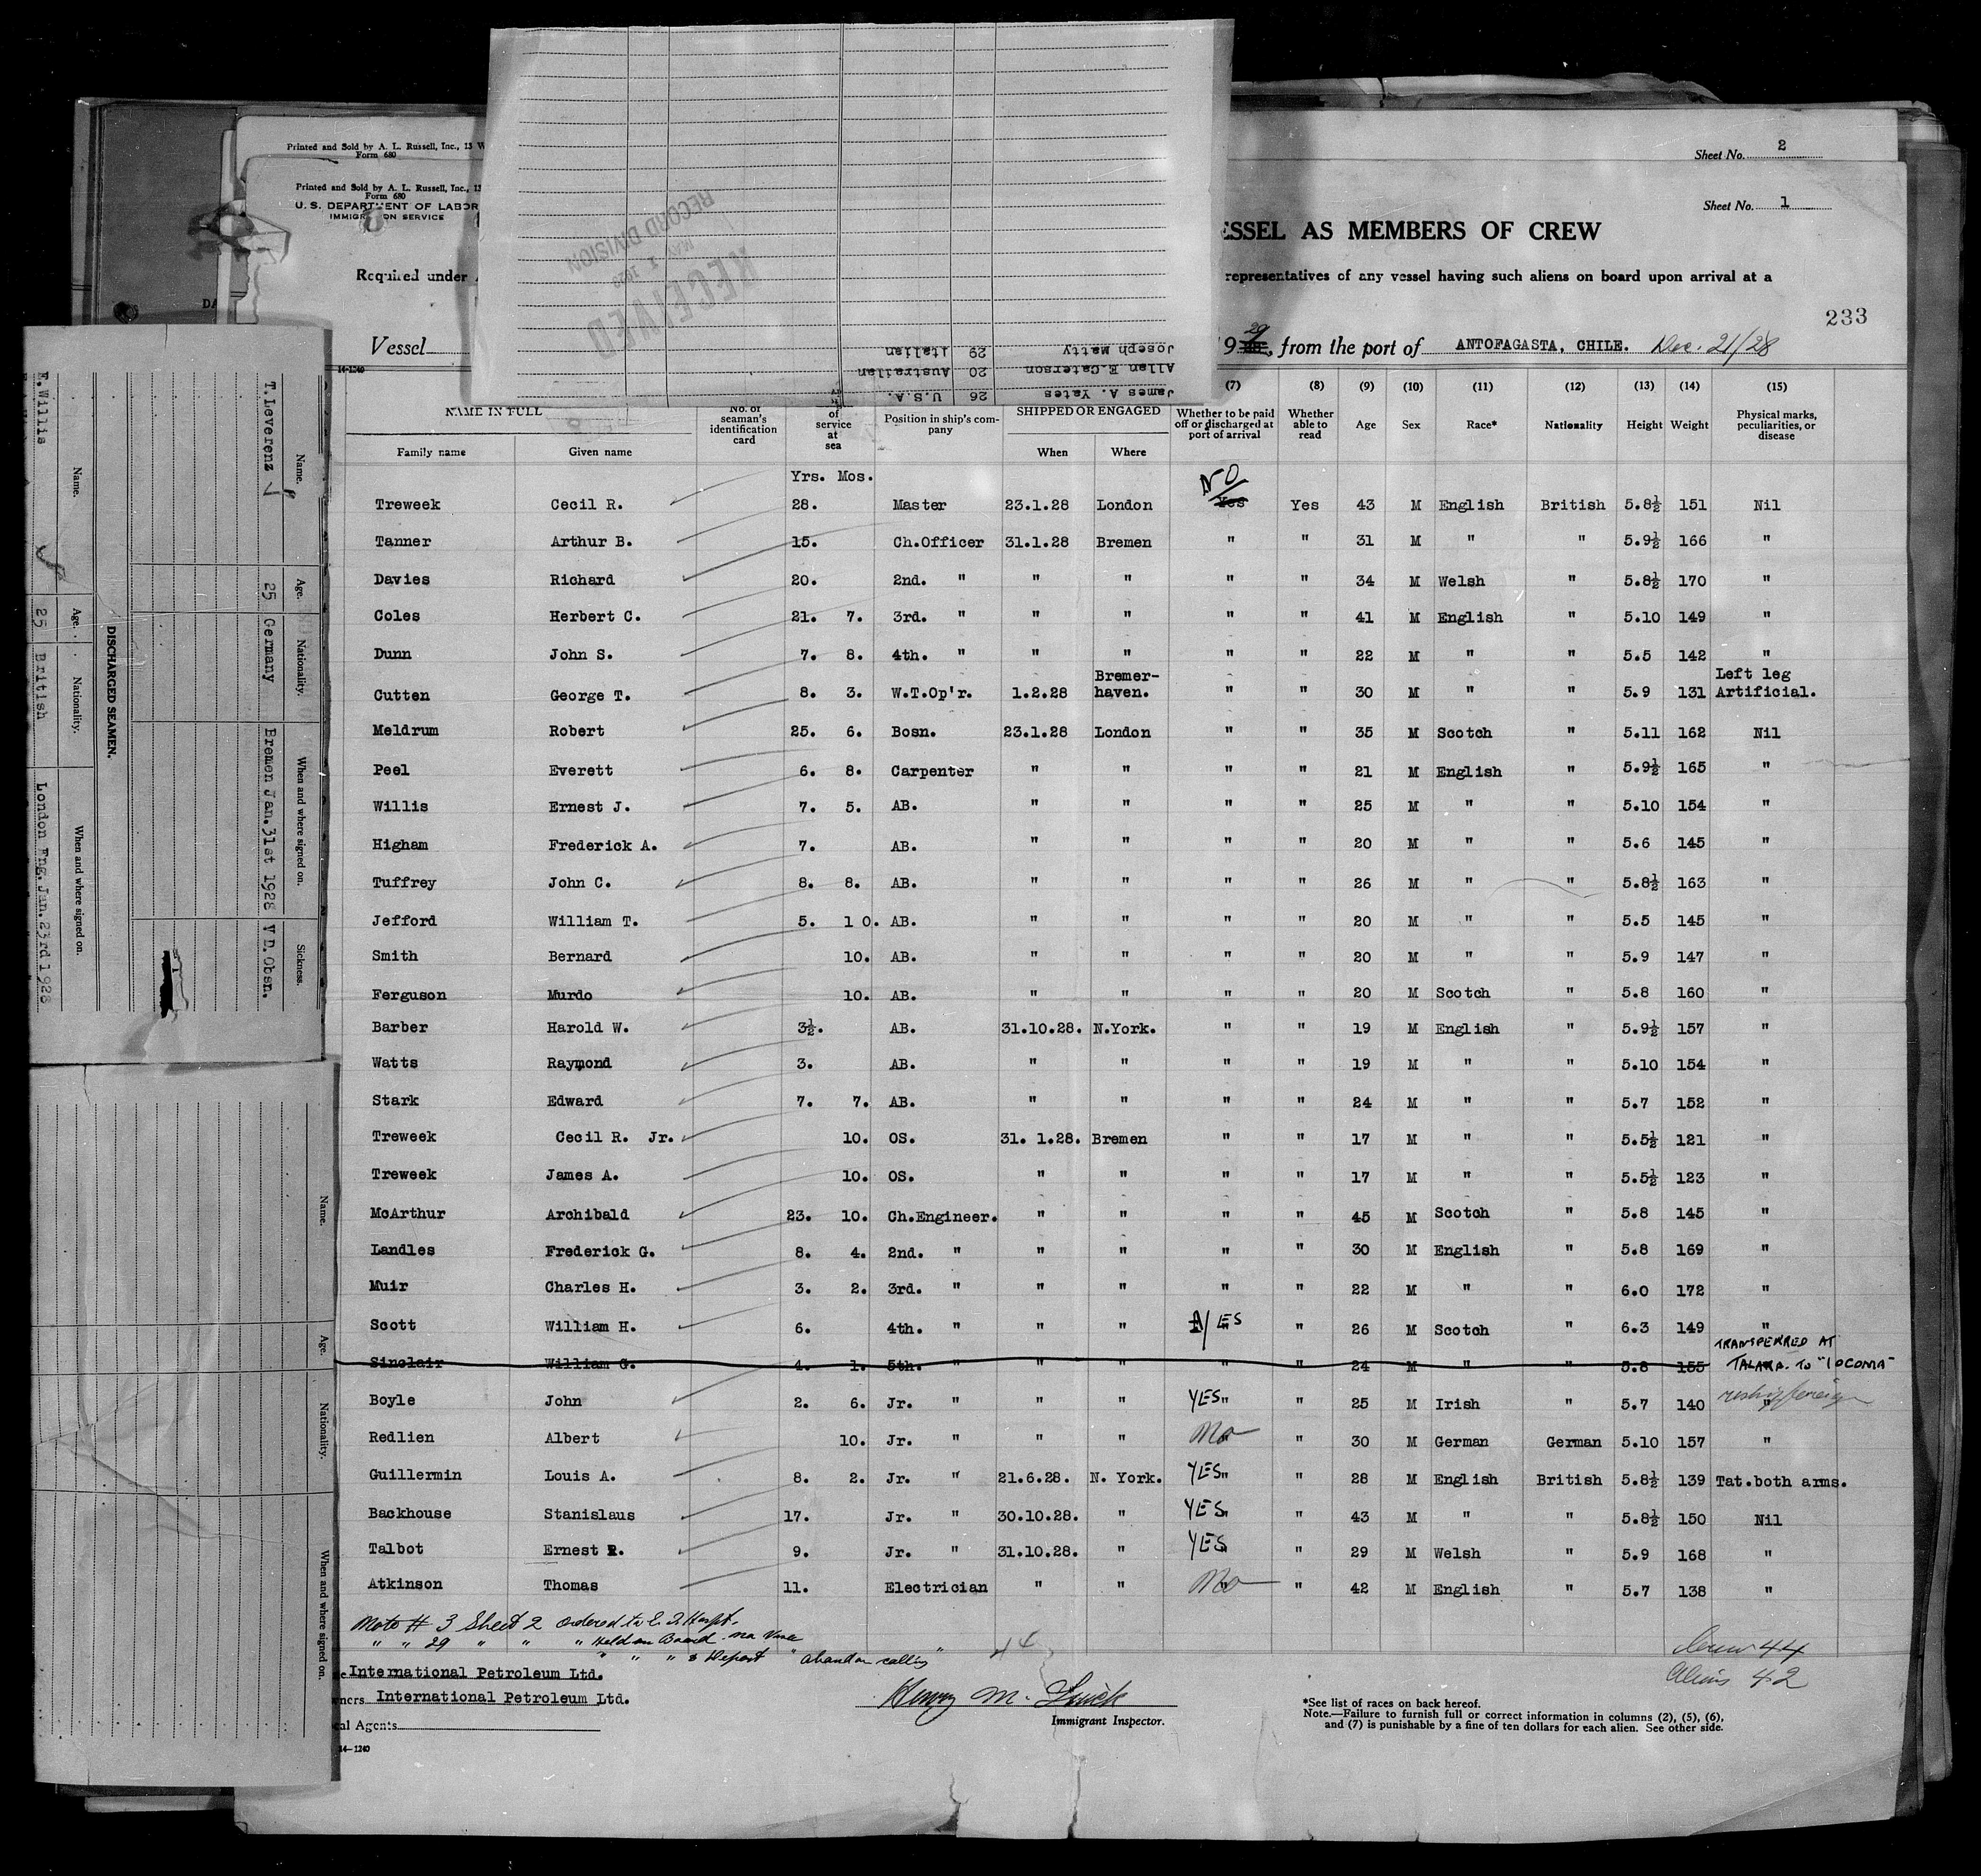 Printed and Sold by A. L. Russell, Inc., 13 W
Form 680
Sheet No. 2
Printed and Sold by A. L. Russell, Inc., 13
Form 680
U. S. DEPARTMENT OF LABOR
IMMIGRATION SERVICE
Sheet No. 1
ESSEL AS MEMBERS OF CREW
Required under
representatives of any vessel having such aliens on board upon arrival at a
233
Vessel
9 29, from the port of ANTOFAGASTA, CHILE. Dec. 21/28
14-1240
RECEIVED
RECORD DIVISION
Joseph Matty 29 Italian
Allan E. Caterson 20 Australian
James A. Yates 26 U.S.A.
(7) (8) (9) (10) (11) (12) (13) (14) (15)
NAME IN FULL
Family name Given name
No. of seaman's identification card
of service at sea
Position in ship's company
SHIPPED OR ENGAGED
When Where
Whether to be paid off or discharged at port of arrival
Whether able to read
Age Sex Race* Nationality Height Weight
Physical marks, peculiarities, or disease
Yrs. Mos.
NO
Treweek Cecil R. 28. Master 23.1.28 London Yes Yes 43 M English British 5.8½ 151 Nil
Tanner Arthur B. 15. Ch.Officer 31.1.28 Bremen " " 31 M " " 5.9½ 166 "
Davies Richard 20. 2nd. " " " " " 34 M Welsh " 5.8½ 170 "
Coles Herbert C. 21. 7. 3rd. " " " " " 41 M English " 5.10 149 "
Dunn John S. 7. 8. 4th. " " " " " 22 M " " 5.5 142 "
Cutten George T. 8. 3. W.T.Op'r. 1.2.28 Bremer-haven. " " 30 M " " 5.9 131 Left leg Artificial.
Meldrum Robert 25. 6. Bosn. 23.1.28 London " " 35 M Scotch " 5.11 162 Nil
Peel Everett 6. 8. Carpenter " " " " 21 M English " 5.9½ 165 "
Willis Ernest J. 7. 5. AB. " " " " 25 M " " 5.10 154 "
Higham Frederick A. 7. AB. " " " " 20 M " " 5.6 145 "
Tuffrey John C. 8. 8. AB. " " " " 26 M " " 5.8½ 163 "
Jefford William T. 5. 1 0. AB. " " " " 20 M " " 5.5 145 "
Smith Bernard 10. AB. " " " " 20 M " " 5.9 147 "
Ferguson Murdo 10. AB. " " " " 20 M Scotch " 5.8 160 "
Barber Harold W. 3½. AB. 31.10.28. N.York. " " 19 M English " 5.9½ 157 "
Watts Raymond 3. AB. " " " " 19 M " " 5.10 154 "
Stark Edward 7. 7. AB. " " " " 24 M " " 5.7 152 "
Treweek Cecil R. Jr. 10. OS. 31. 1.28. Bremen " " 17 M " " 5.5½ 121 "
Treweek James A. 10. OS. " " " " 17 M " " 5.5½ 123 "
McArthur Archibald 23. 10. Ch.Engineer. " " " " 45 M Scotch " 5.8 145 "
Landles Frederick G. 8. 4. 2nd. " " " " " 30 M English " 5.8 169 "
Muir Charles H. 3. 2. 3rd. " " " " " 22 M " " 6.0 172 "
Scott William H. 6. 4th. " " " YES " 26 M Scotch " 6.3 149 "
Sinclair William G. 4. 1. 5th. " " " " " 24 M " " 5.8 155 TRANSFERRED AT TALARA. TO "IOCOMA"
Boyle John 2. 6. Jr. " " " YES " " 25 M Irish " 5.7 140 reship foreign "
Redlien Albert 10. Jr. " " " No " 30 M German German 5.10 157 "
Guillermin Louis A. 8. 2. Jr. " 21.6.28. N. York. YES " " 28 M English British 5.8½ 139 Tat.both arms.
Backhouse Stanislaus 17. Jr. " 30.10.28. " YES " 43 M " " 5.8½ 150 Nil
Talbot Ernest R. 9. Jr. " 31.10.28. " YES " 29 M Welsh " 5.9 168 "
Atkinson Thomas 11. Electrician " " No " 42 M English " 5.7 138 "
Note # 3 Sheet 2 ordered to E. I. Hospt.
" " 29 " " " Held on Board
" " " Deport "abandon calling"
Crew 44
Aliens 42
International Petroleum Ltd.
ners International Petroleum Ltd.
al Agents
14-1240
Henry M.
Immigrant Inspector.
*See list of races on back hereof.
Note.—Failure to furnish full or correct information in columns (2), (5), (6),
and (7) is punishable by a fine of ten dollars for each alien. See other side.
Name. Age. Nationality. When and where signed on. Sickness.
T.Leverenz 25 Germany Bremen Jan.31st 1928 V D.Obsn.
DISCHARGED SEAMEN.
Name. Age. Nationality. When and where signed on.
E.Willis 25 British London Eng. Jan.23rd 1928
Name. Age. Nationality. When and where signed on.